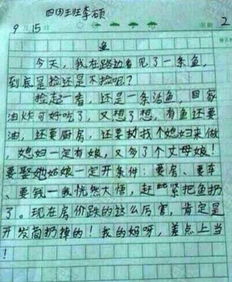 四(2)班李硕
9月15日 2
鱼
今天，我在路边看见了一条鱼，
到底是捡还是不捡呢？
捡起一看，还是一条活鱼，回家
油炸可好吃了，又想了想，有鱼还要
油，还要厨房，还要找个媳妇来做
，媳妇一定有娘，又多了个丈母娘！
要娶她姑娘一定开条件：要房、要车、
要钱…我恍然大悟，赶紧把鱼扔
了。现在房价跌的这么厉害，肯定是
开发商扔掉的！我的妈呀，差点上当
！